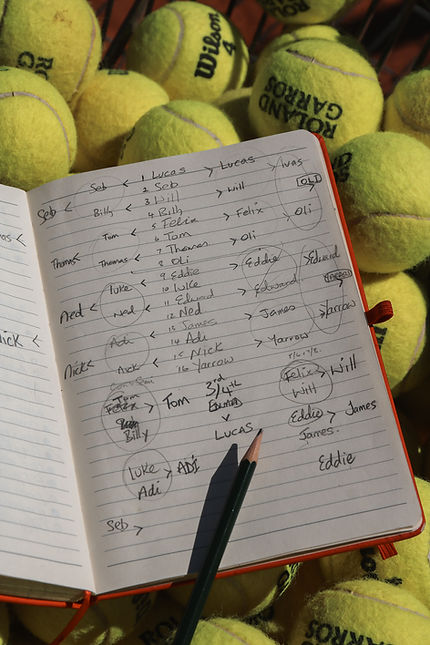 Wilson
4
ROLAND
GARROS
Seb < Seb < 1 Lucas > Lucas > Lucas
2 Seb
OLI
Billy < 3 Will > Will
4 Billy
Tom < 5 Felix > Felix > Oli
6 Tom
Thomas < Thomas < 7 Thomas > Oli
8 Oli
Luke < 9 Eddie > Eddie > Edward
10 Luke
Ned < Ned < 11 Edward > Edward
12 Ned
Adi < 13 James > James > Yarrow
14 Adi
Nick < Nick < 15 Nick > Yarrow
16 Yarrow
Nick <
Tom
Felix > Tom
Billy
3rd/4th
v
LUCAS
Felix > Will
Will
Eddie > James
James
Eddie
Luke > ADI
Adi
Seb >
ROLAND
GARROS